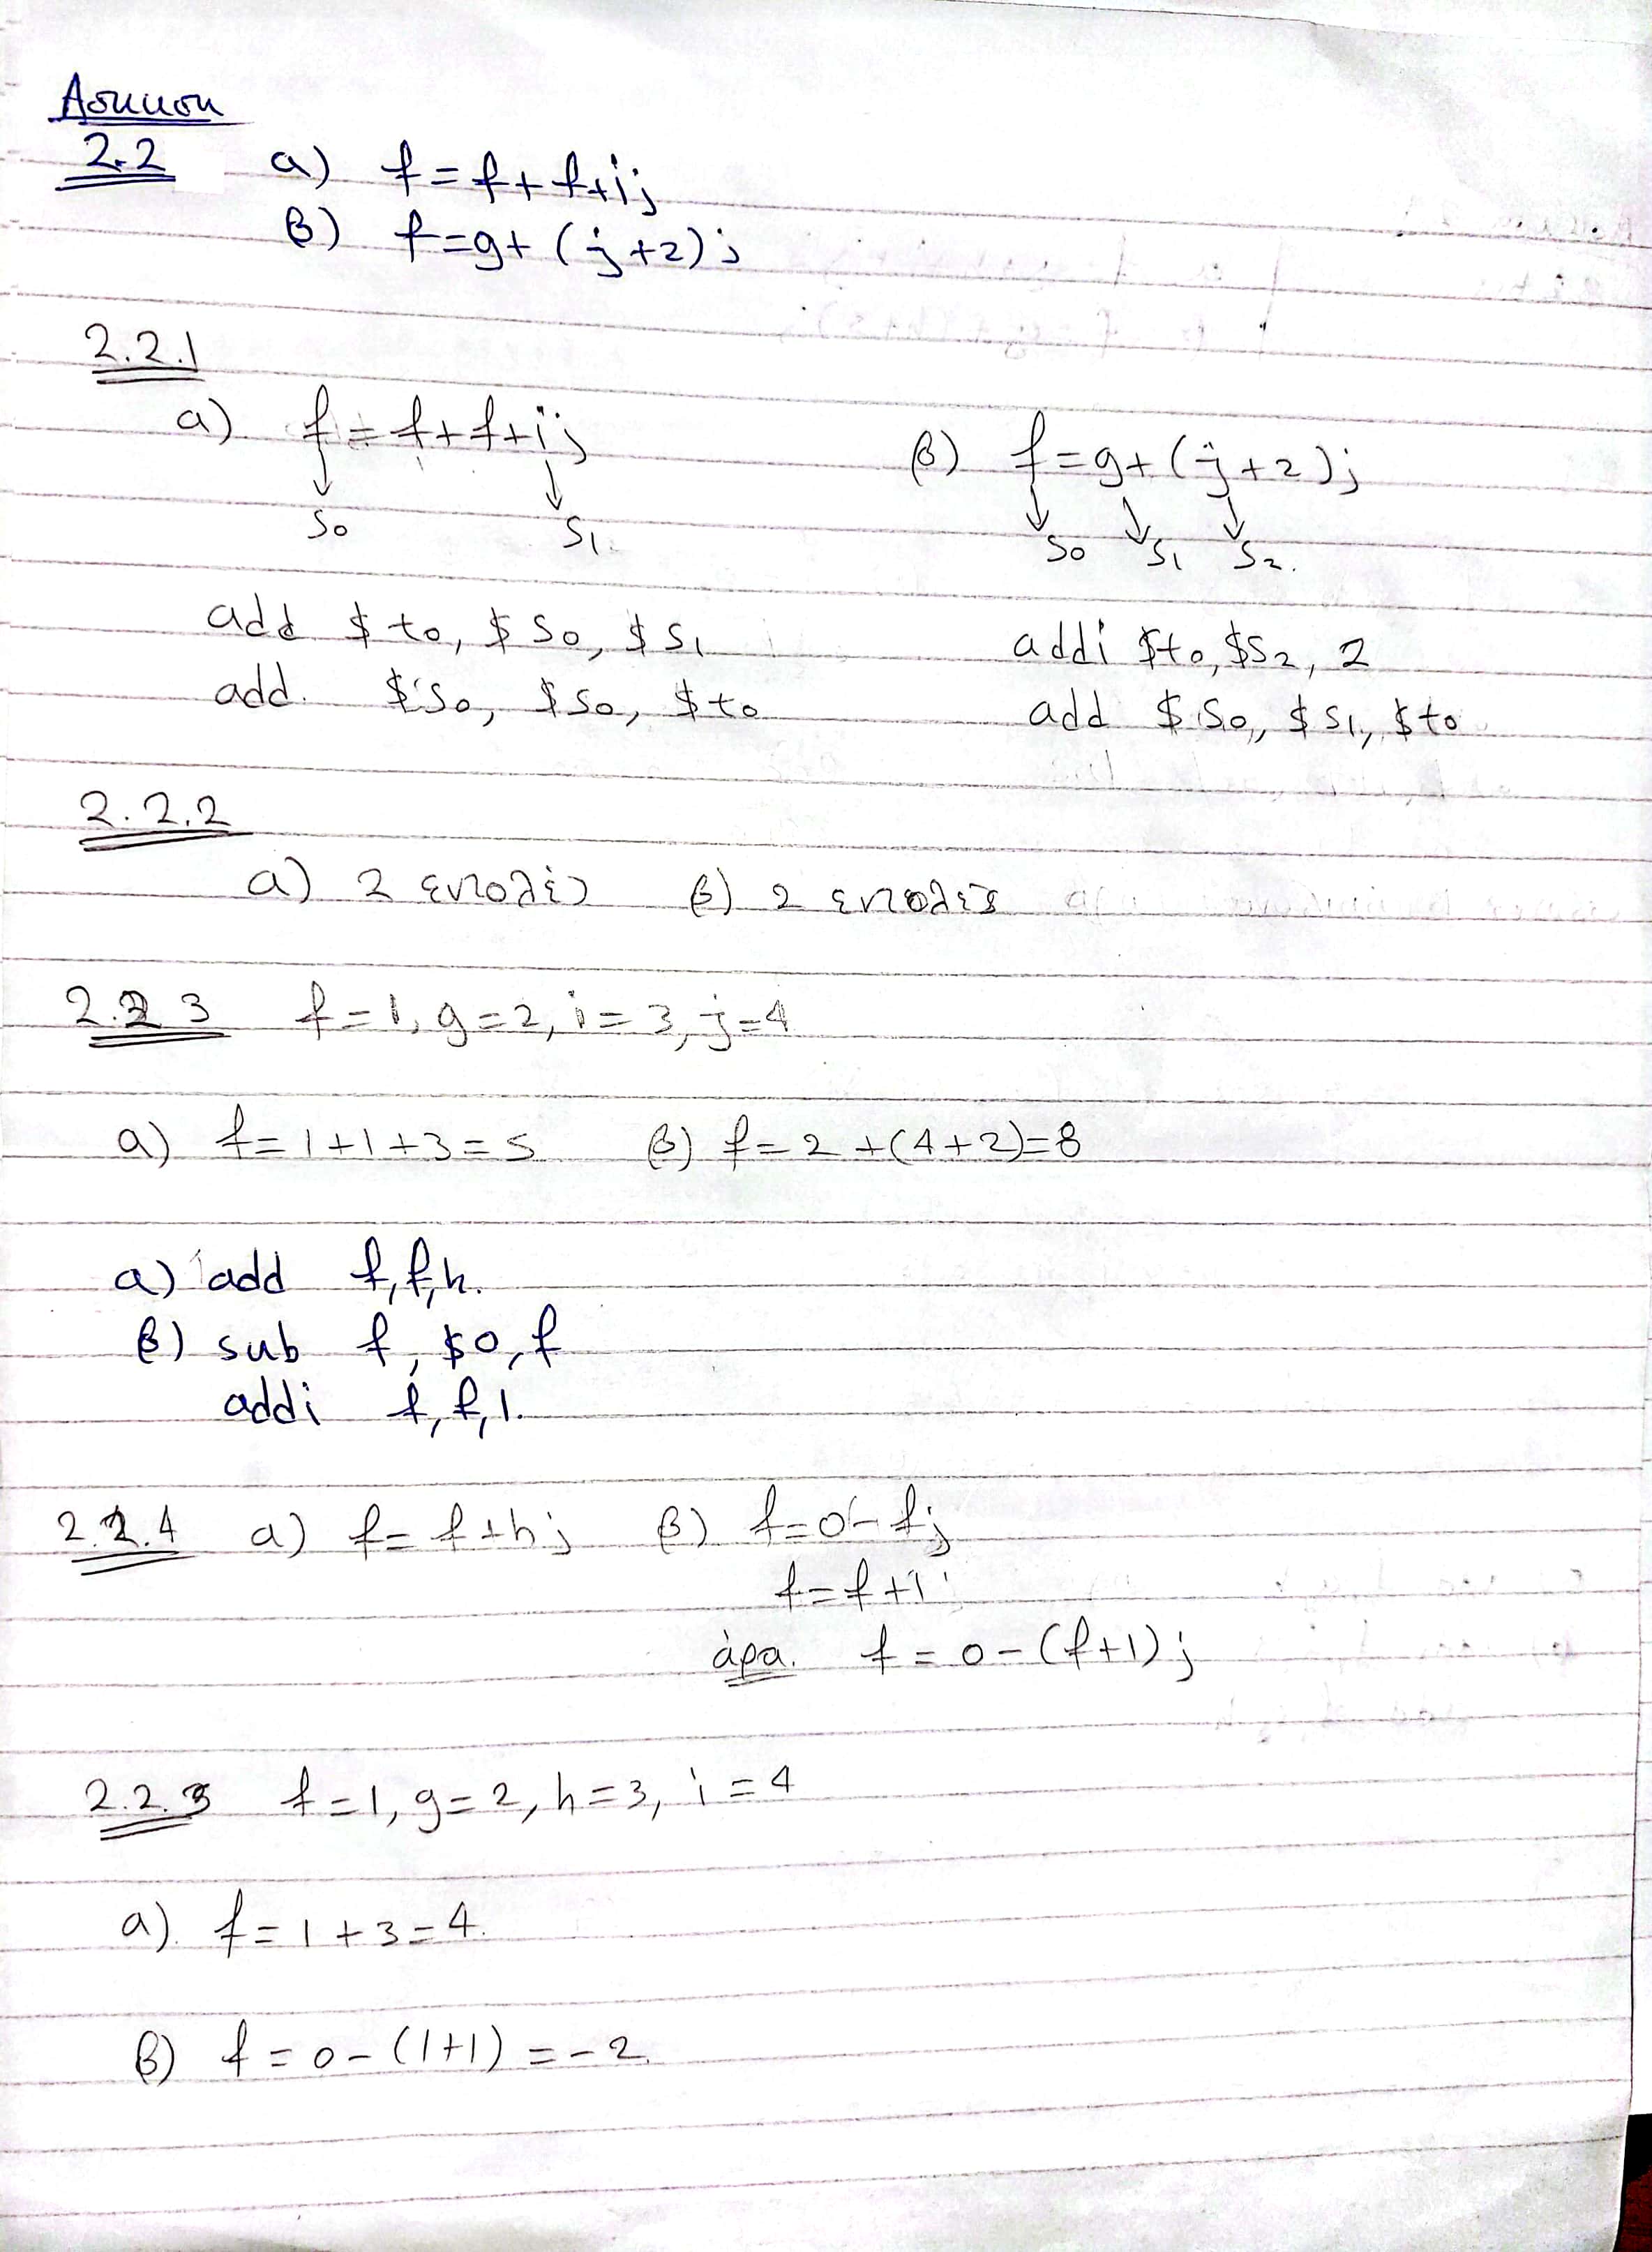 Άσκηση
2.2 α) f = f + f + i;
β) f = g + (j + 2);
2.2.1
α) f = f + f + i; β) f = g + (j + 2);
s0 s1 s0 s1 s2.
add $t0, $s0, $s1 addi $t0, $s2, 2
add $s0, $s0, $t0 add $s0, $s1, $t0
2.2.2
α) 2 εντολές β) 2 εντολές
2.2 3 f = 1, g = 2, i = 3, j = 4
α) f = 1 + 1 + 3 = 5 β) f = 2 + (4 + 2) = 8
α) add f, f, h.
β) sub f, $0, f
addi f, f, 1.
2.2.4 α) f = f + h; β) f = 0 - f;
f = f + 1;
άρα. f = 0 - (f + 1);
2.2.3 f = 1, g = 2, h = 3, i = 4
α). f = 1 + 3 = 4.
β) f = 0 - (1 + 1) = -2.